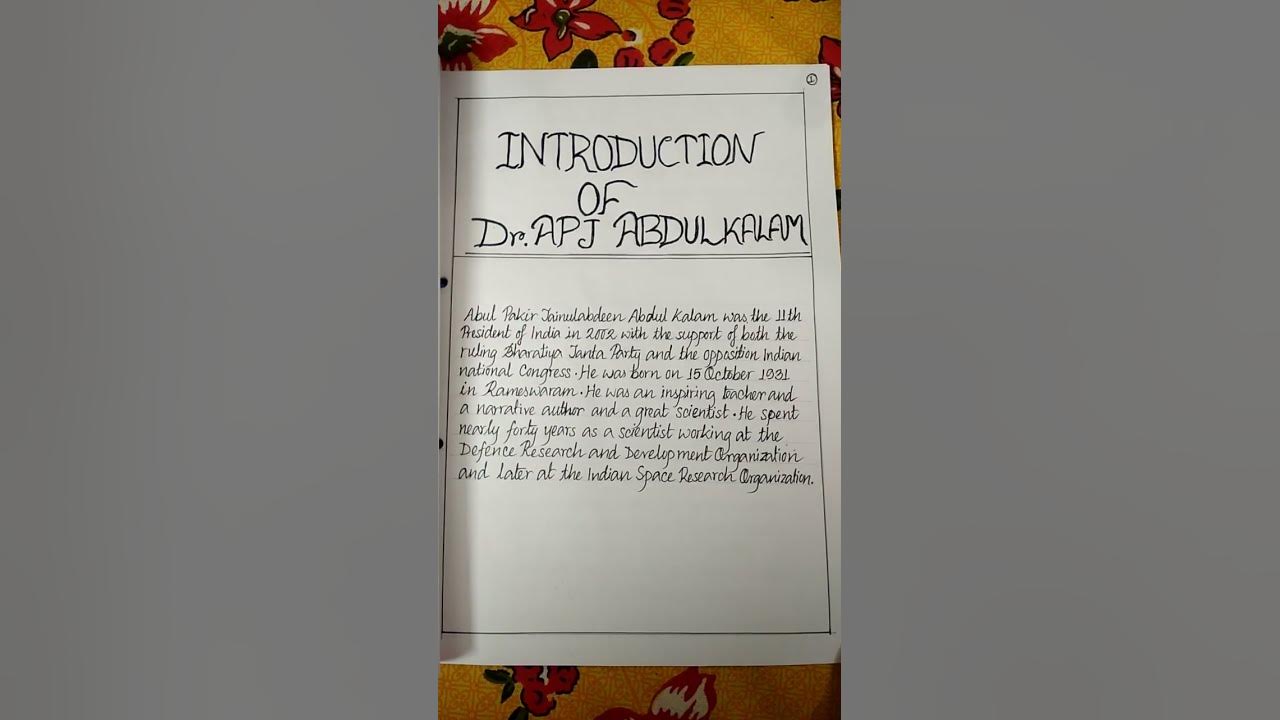 1
INTRODUCTION
OF
Dr. APJ ABDUL KALAM
Abul Pakir Jainulabdeen Abdul Kalam was the 11th
President of India in 2002 with the support of both the
ruling Bharatiya Janta Party and the opposition Indian
national Congress. He was born on 15 October 1931
in Rameswaram. He was an inspiring teacher and
a narrative author and a great scientist. He spent
nearly forty years as a scientist working at the
Defence Research and Development Organization
and later at the Indian Space Research Organization.